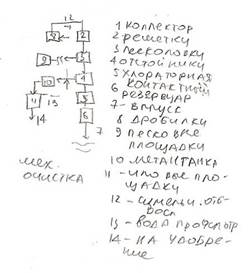 12
1 КОЛЛЕКТОР
2 РЕШЕТКУ
3 ПЕСКОЛОВКУ
4 ОТСТОЙНИКИ
5 ХЛОРАТОРНАЯ
6 КОНТАКТНЫЙ
РЕЗЕРВУАР
7 - ВЫПУСК
8 ДРОБИЛКИ
9 ПЕСКОВЫЕ
ПЛОЩАДКИ
10 МЕТАНТАНКА
11 - ИЛОВЫЕ ПЛО-
ЩАДКУ
12 -
13 - ВОДА
14 - НА УДОБРЕ-
НИЕ
2
3
9
4
10
5
11
13
6
14
7
МЕХ.
ОЧИСТКА